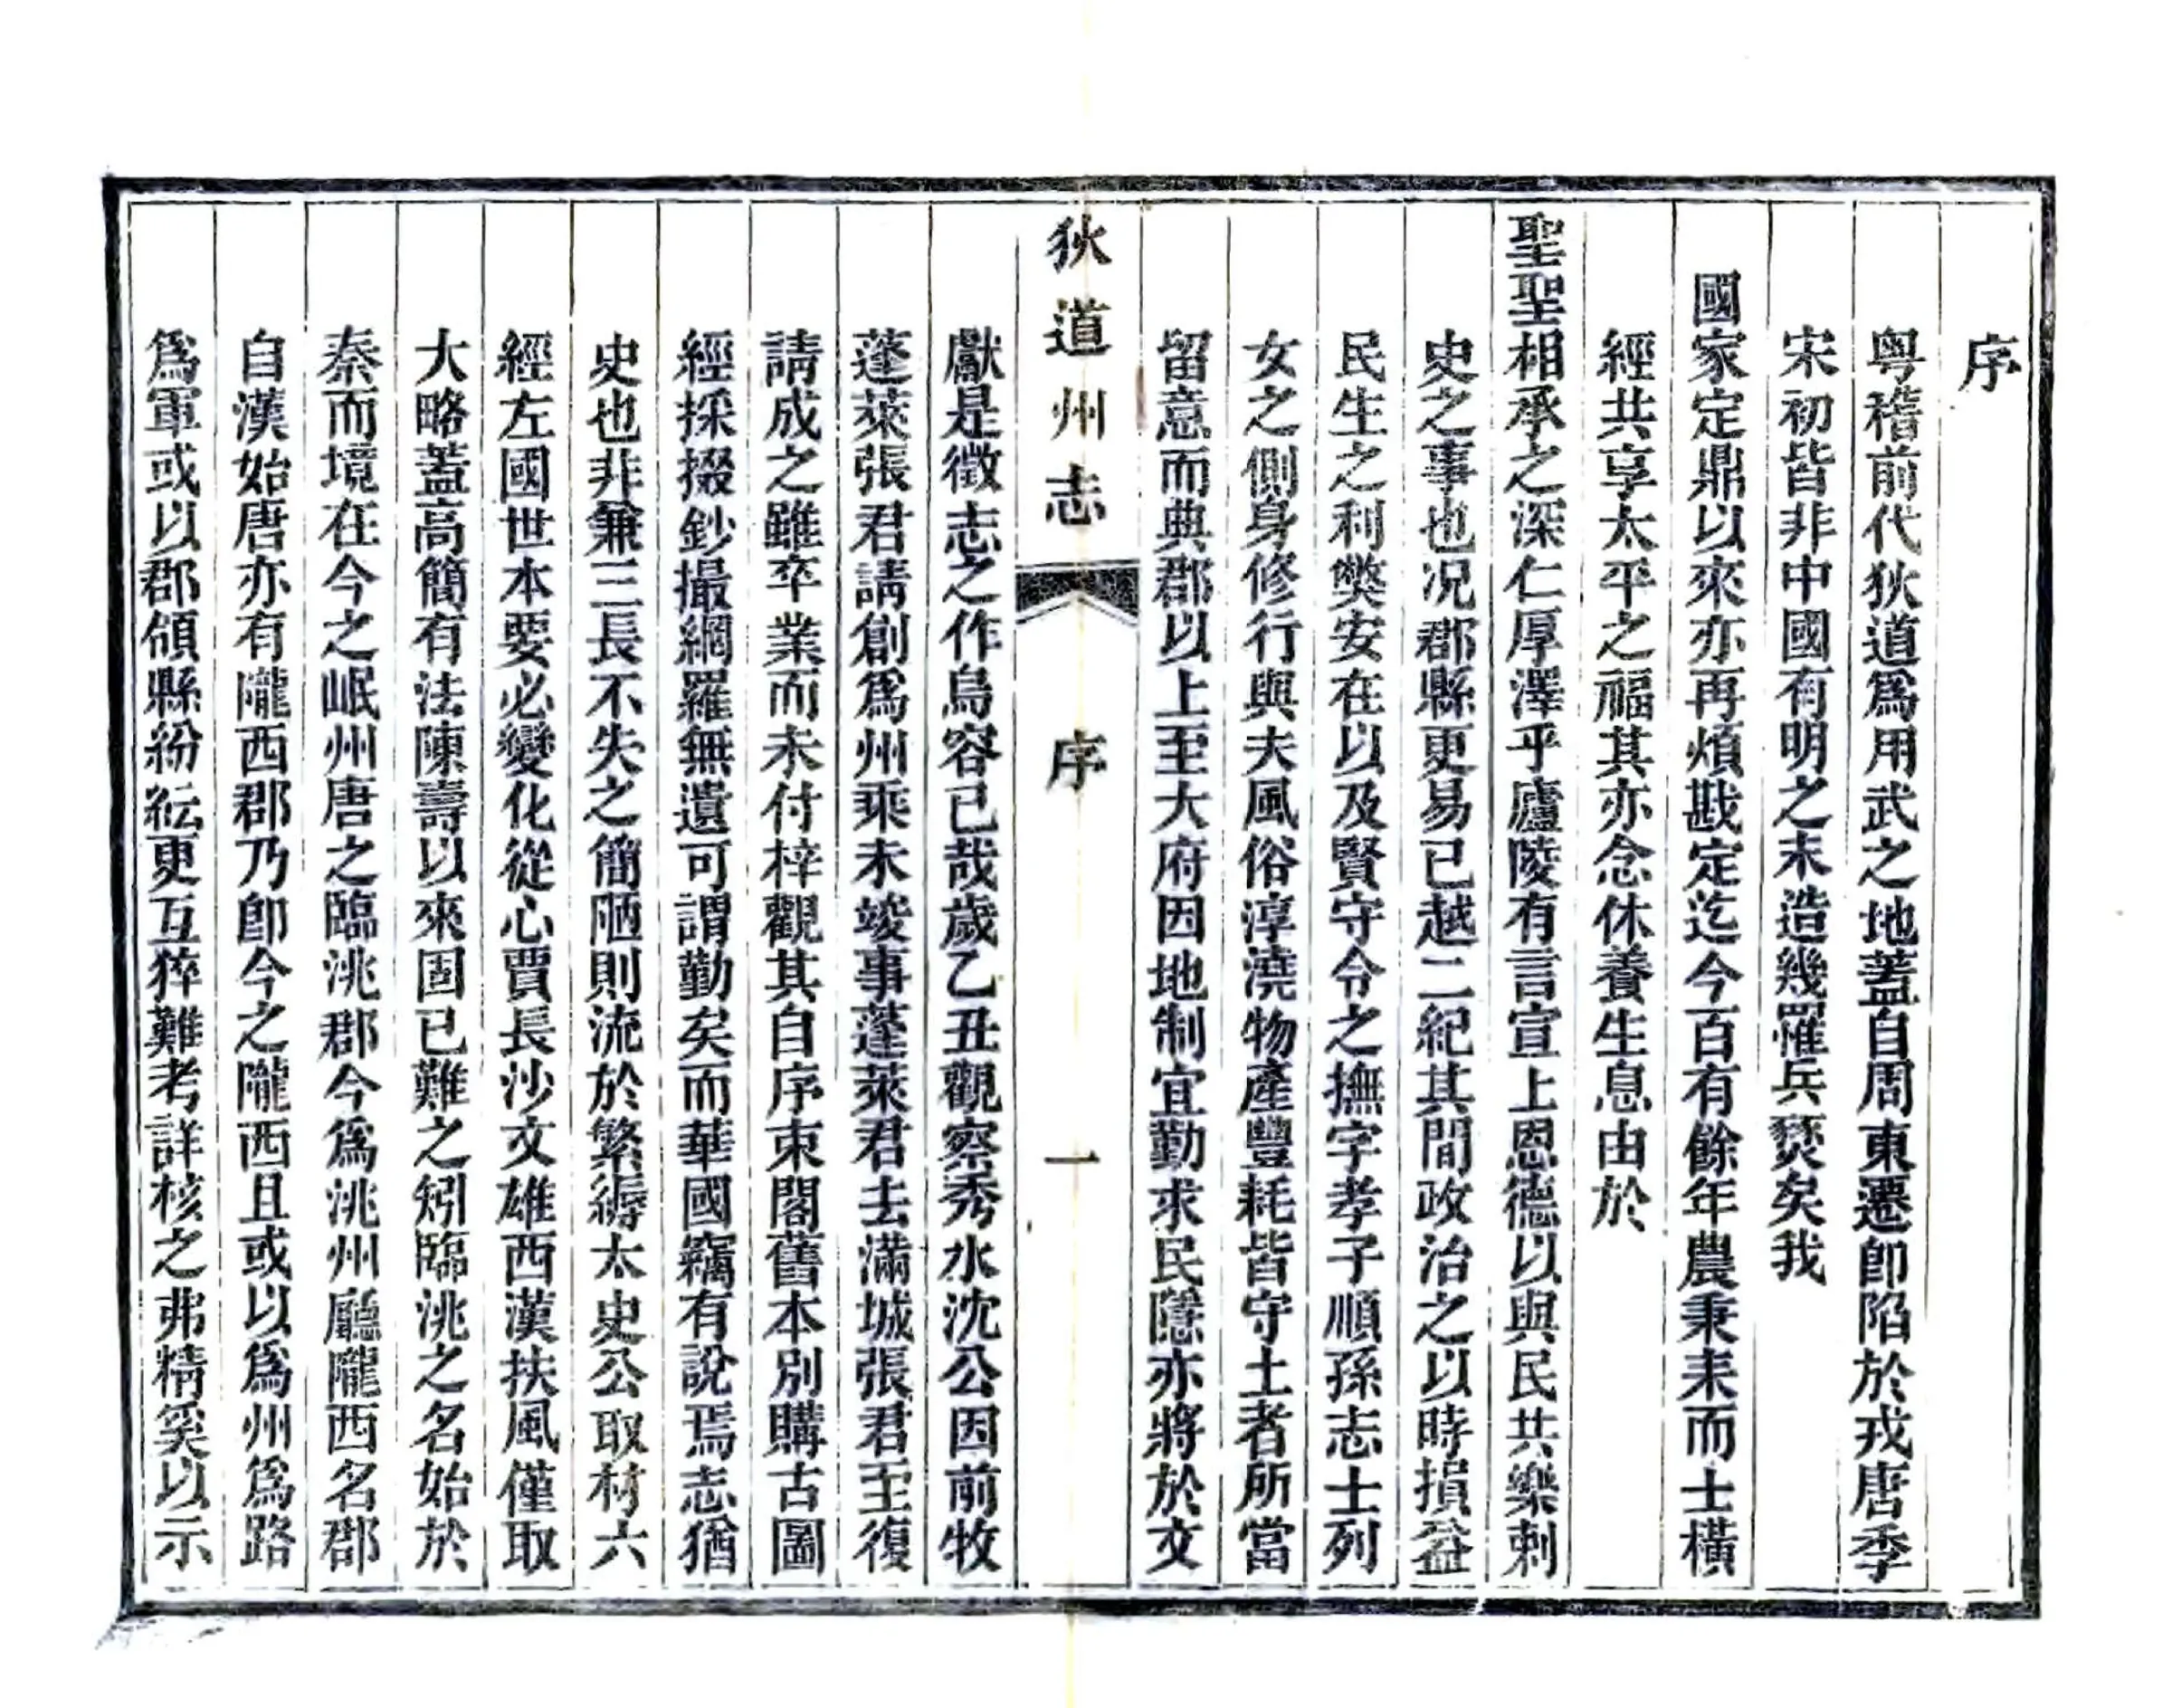 序
粤稽前代狄道爲用武之地蓋自周東遷卽陷於戎唐季
宋初皆非中國有明之末造幾罹兵燹矣我
國家定鼎以來亦再煩戡定迄今百有餘年農秉耒而士橫
經共享太平之福其亦念休養生息由於
聖聖相承之深仁厚澤乎廬陵有言宣上恩德以與民共樂刺
史之事也况郡縣更易已越二紀其間政治之以時損益
民生之利獘安在以及賢守令之撫字孝子順孫志士列
女之側身修行與夫風俗淳澆物產豐耗皆守土者所當
留意而典郡以上至大府因地制宜勤求民隱亦將於文
狄道州志 序 一
獻是徵志之作烏容已哉歲乙丑觀察秀水沈公因前牧
蓬萊張君請創爲州乘未竣事蓬萊君去滿城張君至復
請成之雖卒業而未付梓觀其自序束閣舊本別購古圖
經採掇鈔撮網羅無遺可謂勤矣而華國竊有說焉志猶
史也非兼三長不失之簡陋則流於繁縟太史公取材六
經左國世本要必變化從心賈長沙文雄西漢扶風僅取
大略蓋高簡有法陳壽以來固已難之矧臨洮之名始於
秦而境在今之岷州唐之臨洮郡今爲洮州廳隴西名郡
自漢始唐亦有隴西郡乃卽今之隴西且或以爲州爲路
爲軍或以郡領縣紛紜更互猝難考詳核之弗精奚以示